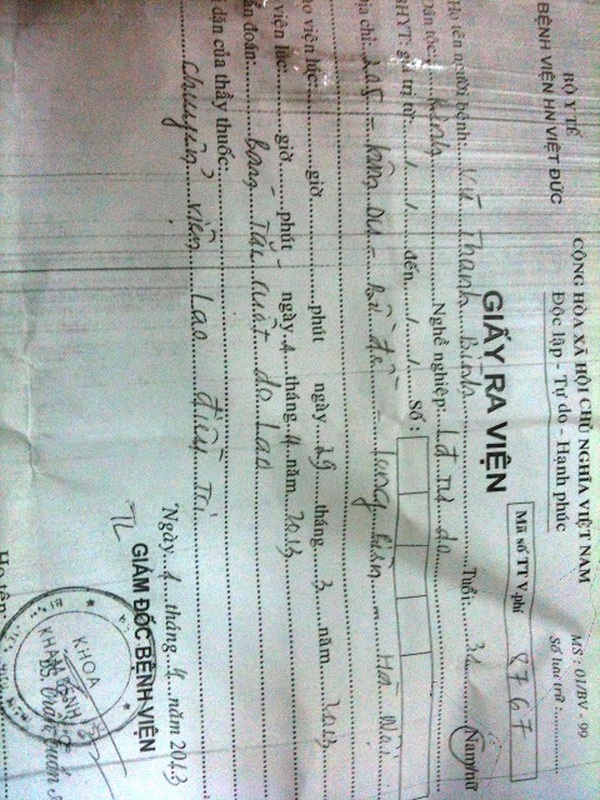 BỘ Y TẾ
BỆNH VIỆN HN VIỆT ĐỨC
CỘNG HÒA XÃ HỘI CHỦ NGHĨA VIỆT NAM
Độc lập - Tự do - Hạnh phúc
MS : 01/BV - 99
Số lưu trữ
Mã số TT V.phí 8767
GIẤY RA VIỆN
Họ tên người bệnh: Vũ Thanh Bình Tuổi: 31 Nam/nữ
Dân tộc: Kinh Nghề nghiệp: Lđ tự do
BHYT: giá trị từ: / / đến / / Số :
ịa chỉ: - Long Biên - Hà Nội
ào viện lúc: giờ phút ngày 29 tháng 3 năm 2013
viện lúc: giờ phút ngày 1 tháng 4 năm 2013
ẩn đoán: Bán Tắc ruột do Lao
dẫn của thầy thuốc:
chuyển viện Lao điều Trị
Ngày 1 tháng 4 năm 2013
TL GIÁM ĐỐC BỆNH VIỆN
KHOA
KHÁM BỆNH
Họ tên